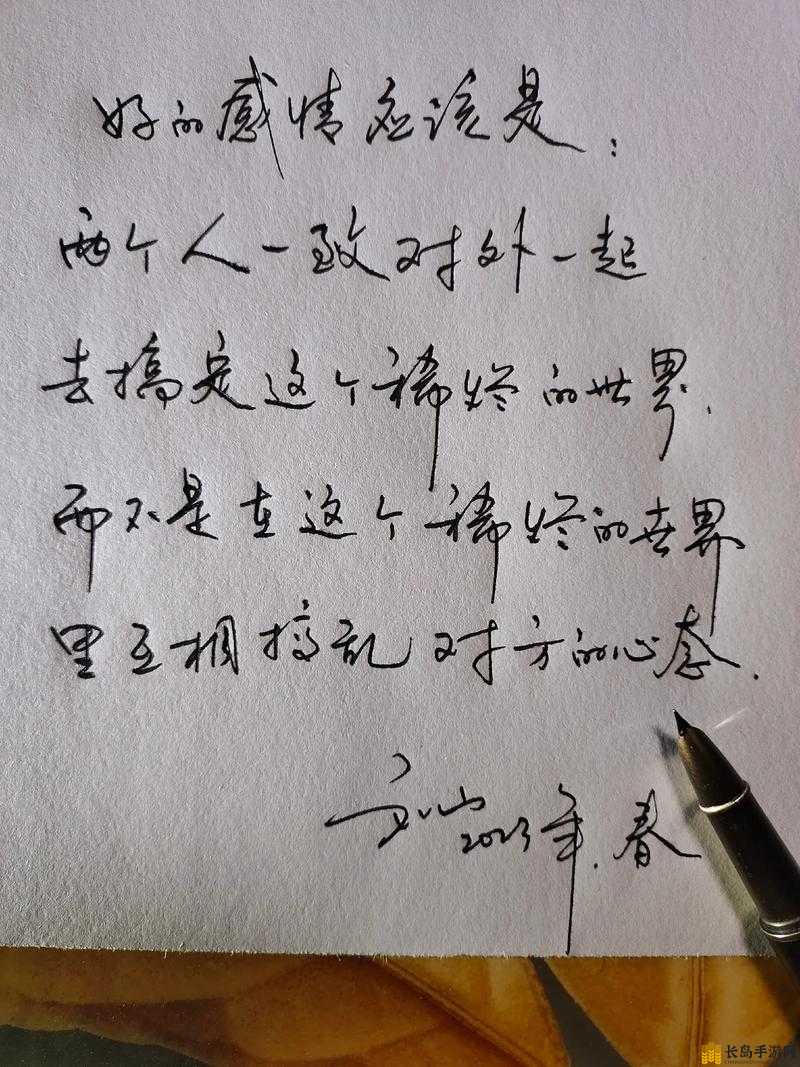 好的感情应该是：
两个人一致对外一起
去搞定这个稀烂的世界.
而不是在这个稀烂的世界
里互相搞乱对方的心态.
2023年.春
长岛手游网